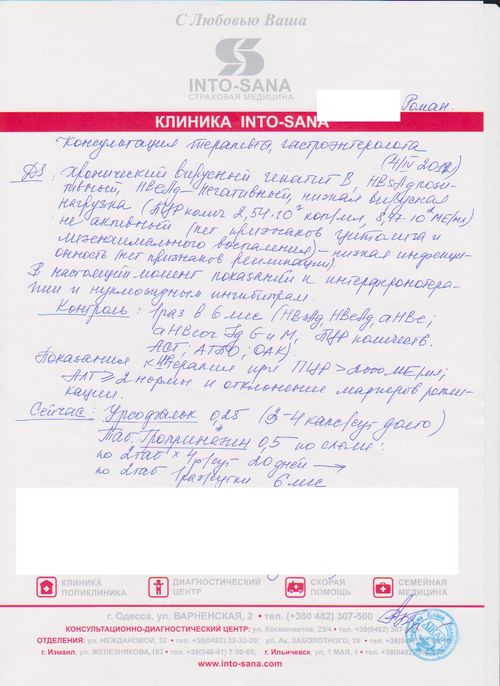 С Любовью Ваша
INTO-SANA
СТРАХОВАЯ МЕДИЦИНА
Роман.
КЛИНИКА INTO-SANA
Консультация терапевта, гастроэнтеролога
(4/IV 2012)
DS: Хронический вирусный гепатит В, HBsAg пози-
тивный, HBeAg – негативный, низкая вирусная
нагрузка (ПЦР колич 2,54·10³ коп/мл, 8,47·10² МЕ/мл)
не активный (нет признаков цитолиза и
мезенхимального воспаления) – низкая инфекци-
онность (нет признаков репликации).
В настоящей момент показаний к интерферонотера-
пии и нуклеозидным ингибиторам.
Контроль: 1 раз в 6 мес (HBsAg, HBeAg, аНВе;
аНВcor Jg G и М, ПЦР количеств.
АСТ; АТПО; ОАК)
Показания к терапии при ПЦР > 2000 МЕ/мл;
АЛТ ≥ 2 нормы и отклонение маркеров репли-
кации.
Сейчас: Урсодальк 0,25 (3-4 капс/сут долго)
Таб. Гроприназин 0,5 по схеме:
по 2 таб × 4 р/сут 20 дней →
по 2 таб 1 раз/сутки 6 мес
КЛИНИКА
ПОЛИКЛИНИКА
ДИАГНОСТИЧЕСКИЙ
ЦЕНТР
СКОРАЯ
ПОМОЩЬ
СЕМЕЙНАЯ
МЕДИЦИНА
г. Одесса, ул. ВАРНЕНСКАЯ, 2 • тел. (+380 482) 307-500
КОНСУЛЬТАЦИОННО-ДИАГНОСТИЧЕСКИЙ ЦЕНТР: ул. Космонавтов, 23/4 • тел. +38(0482) 307
ОТДЕЛЕНИЯ: ул. НЕЖДАНОВОЙ, 32 • тел. +38(0482) 32-32-20; ул. Ак. ЗАБОЛОТНОГО, 26 • тел. +38
г. Измаил, ул. ЖЕЛЕЗНЯКОВА,182 • тел. +38(048-41) 7-50-65; г. Ильичевск, ул. 1 МАЯ, 1 •
www.into-sana.com